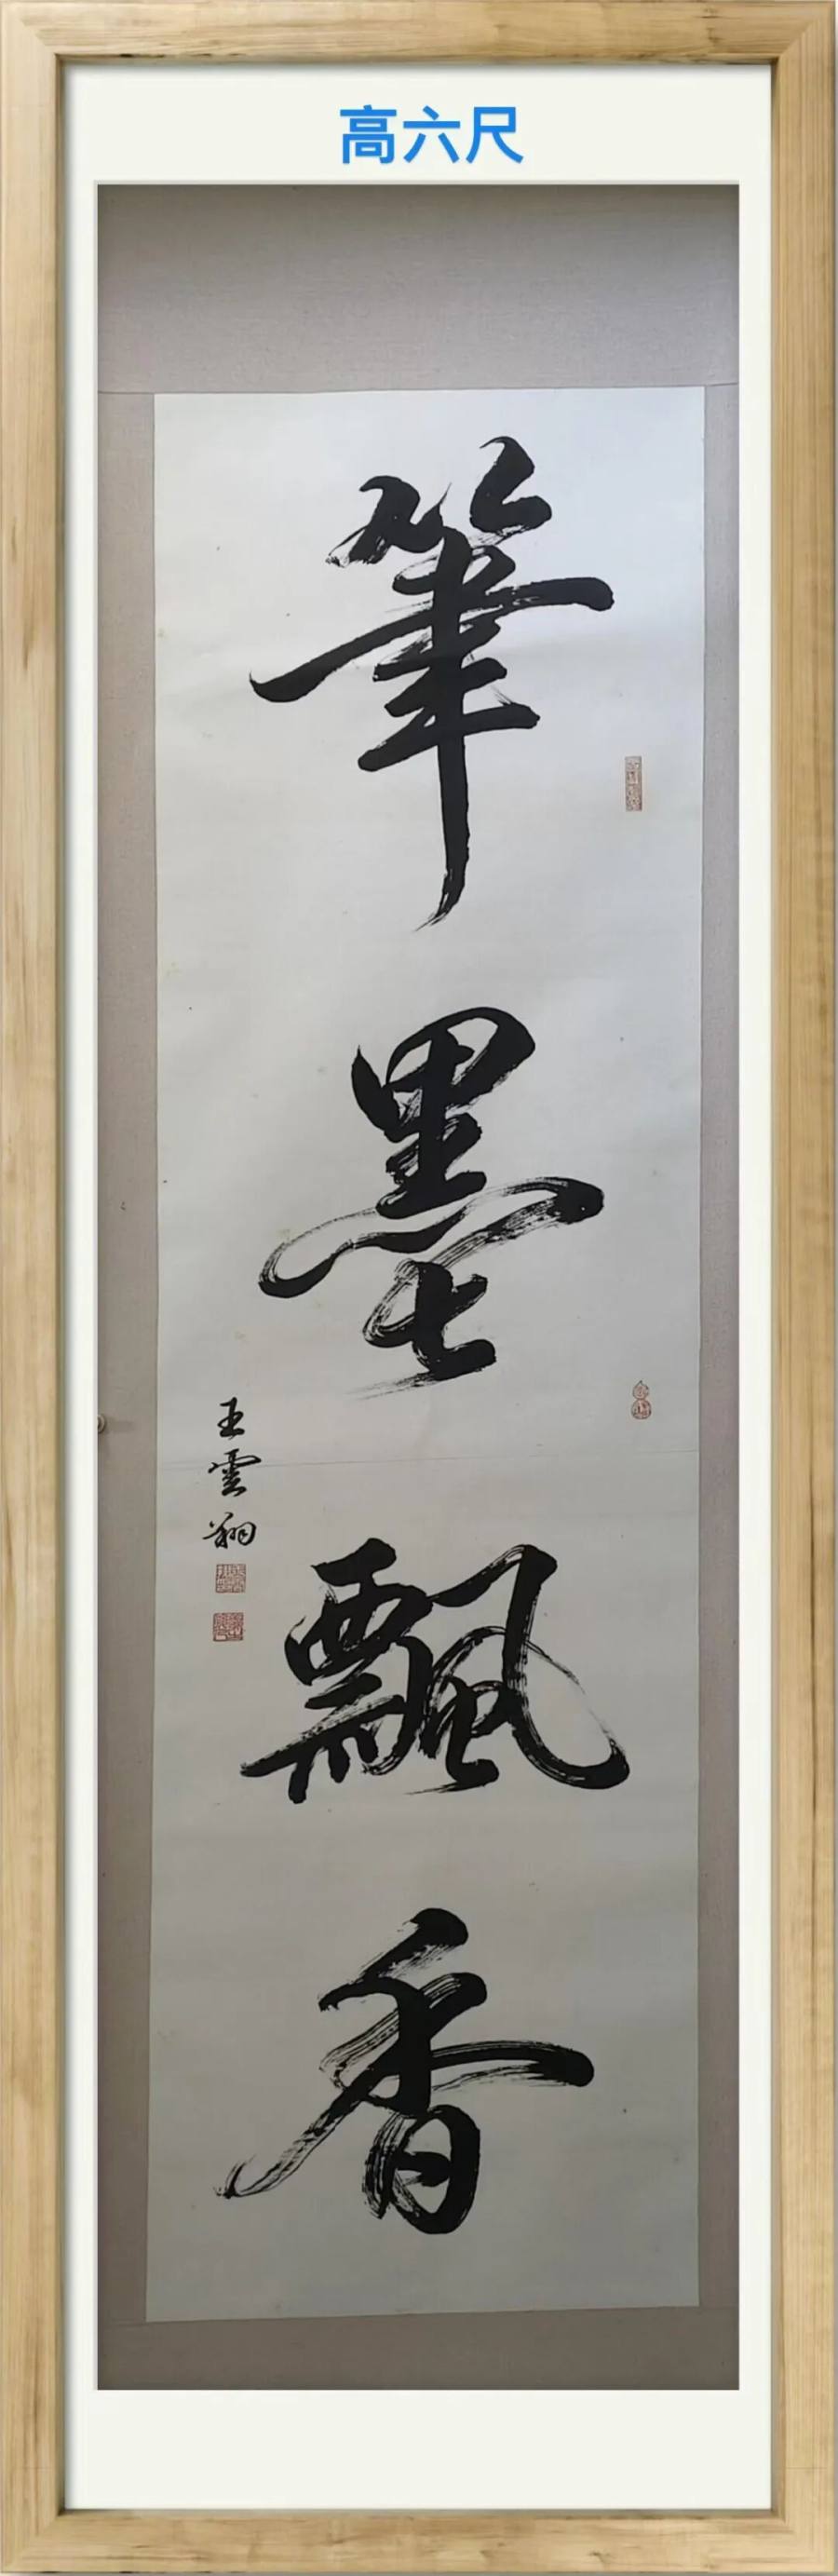 高六尺
筆墨飄香
王雲翔